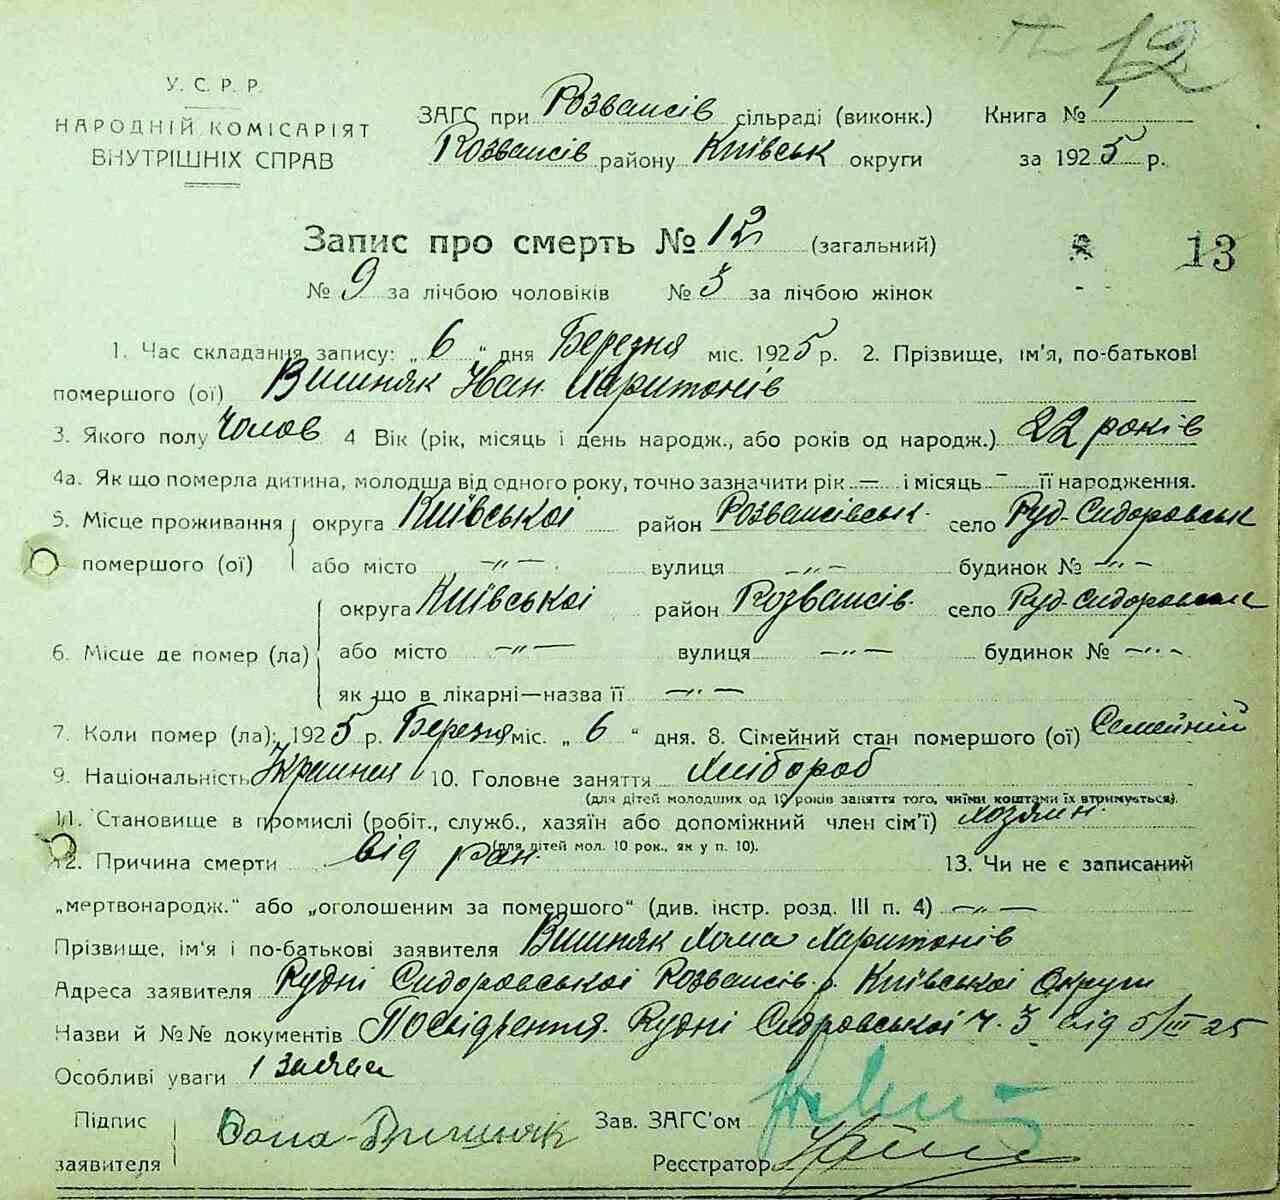 12
У. С. Р. Р.
НАРОДНІЙ КОМІСАРІЯТ
ВНУТРІШНІХ СПРАВ
ЗАГС при Розважів сільраді (виконк.) Книга № 1
Розважів району Київськ округи за 1925 р.
Запис про смерть № 12 (загальний) 13
№ 9 за лічбою чоловіків № 3 за лічбою жінок
1. Час складання запису: „ 6 “ дня Березня міс. 1925 р. 2. Прізвище, ім'я, по-батькові
помершого (ої) Вишняк Іван Харитонів
3. Якого полу Чолов 4 Вік (рік, місяць і день народж., або років од народж.) 22 років
4а. Як що померла дитина, молодша від одного року, точно зазначити рік — і місяць – її народження.
5. Місце проживання помершого (ої) округа Київської район Розважівськ. село Руд-Сидоровськ
або місто —„— вулиця —„— будинок № —„—
6. Місце де помер (ла) округа Київської район Розважів. село Руд-Сидоровськ
або місто —„— вулиця —„— будинок № —„—
як що в лікарні—назва її —„—
7. Коли помер (ла): 1925 р. Березня міс. „ 6 “ дня. 8. Сімейний стан помершого (ої) Семейний
9. Національність 10. Головне заняття Хлібороб
(для дітей молодших од 10 років заняття того, чиїми коштами їх втримується).
11. Становище в промислі (робіт., служб., хазяїн або допоміжний член сім'ї) хозяин.
(для дітей мол. 10 рок., як у п. 10).
12. Причина смерти від ран. 13. Чи не є записаний
„мертвонародж.“ або „оголошеним за помершого“ (див. інстр. розд. III п. 4) —„—
Прізвище, ім'я і по-батькові заявителя Вишняк Хома Харитонів
Адреса заявителя Рудні Сидоровської Розважів. р. Київської Округи
Назви й №№ документів Посвідчення Рудні Сидоровської ч. 3 від 5/III 25
Особливі уваги 1
Підпис заявителя Вишняк Зав. ЗАГС'ом
Реєстратор